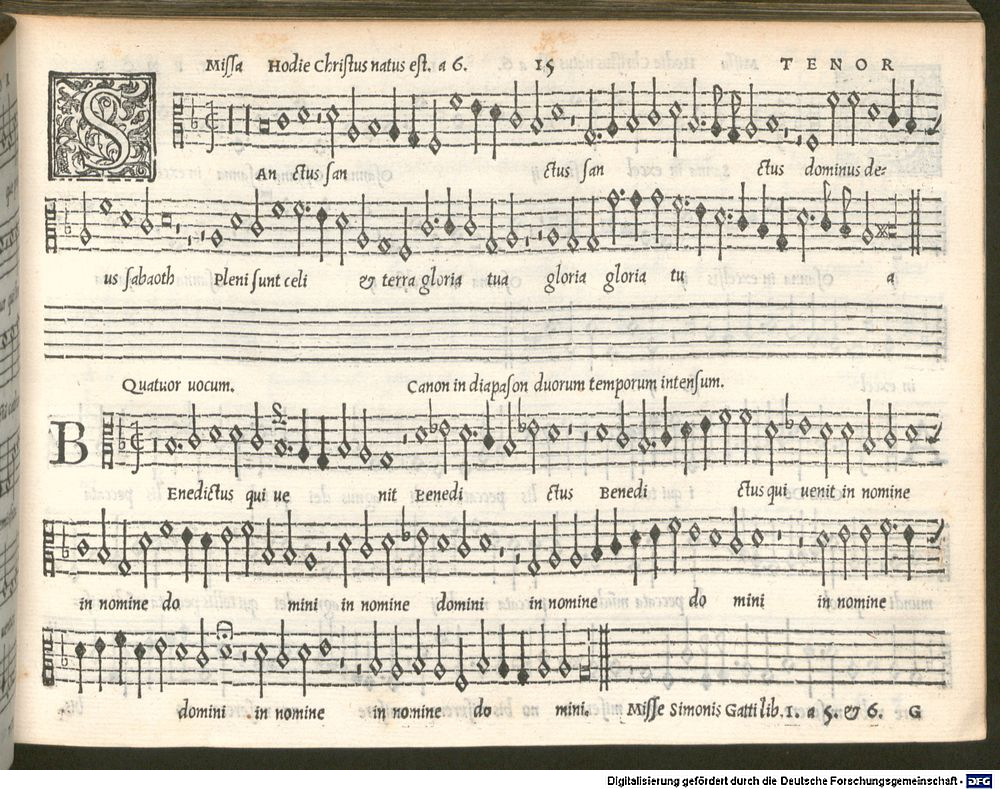 Missa Hodie Christus natus est. a 6. 15 TENOR
SAn ctus san ctus san ctus dominus de-
us sabaoth Pleni sunt celi & terra gloria tua gloria gloria tu a
Quatuor uocum. Canon in diapason duorum temporum intensum.
BEnedictus qui ue nit Benedi ctus Benedi ctus qui uenit in nomine
in nomine do mini in nomine domini in nomine do mini in nomine
domini in nomine in nomine do mini. Misse Simonis Gatti lib. 1. a 5. & 6. G
Digitalisierung gefördert durch die Deutsche Forschungsgemeinschaft - DFG